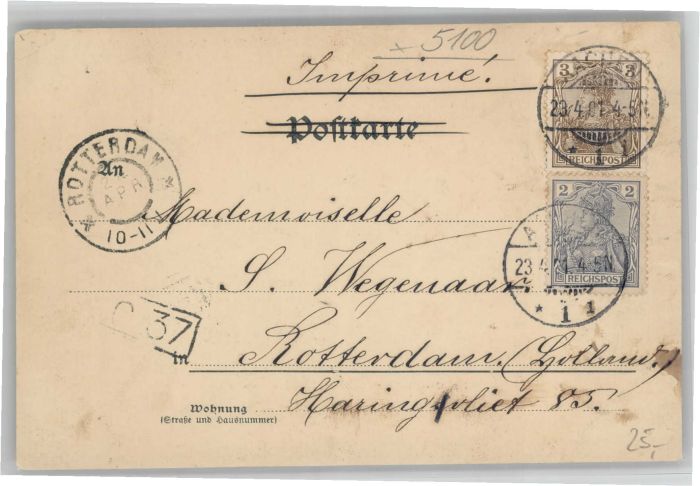 x 5100
Imprimé.
Postkarte
3 3
REICHSPOST
23.4.01.4-5N
* 1 1
ROTTERDAM
APR
10-11
An
Mademoiselle
2 2
REICHSPOST
S. Wegenaar
23.4.01.4-5N
* 1 1
37
in
Rotterdam. (Holland.)
Haringvliet 85.
Wohnung
(Straße und Hausnummer)
25,-